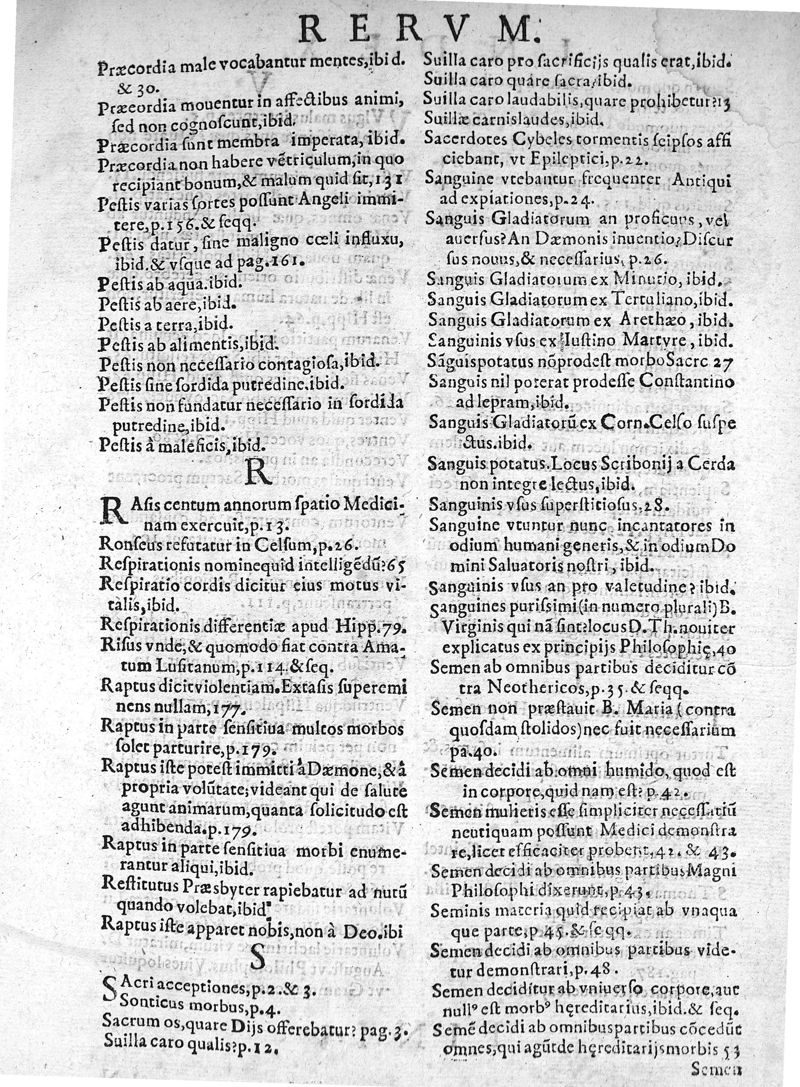 RERVM.
Præcordia male vocabantur mentes,ibid.
& 30.
Præcordia mouentur in affectibus animi,
sed non cognoscunt,ibid.
Præcordia sunt membra imperata, ibid.
Præcordia non habere vẽtriculum,in quo
recipiant bonum,& malum quid sit,131
Pestis varias sortes possunt Angeli immi-
tere,p.156.& seqq.
Pestis datur, sine maligno cœli influxu,
ibid.& vsque ad pag.161.
Pestis ab aqua.ibid.
Pestis ab aere,ibid.
Pestis a terra,ibid.
Pestis ab alimentis,ibid.
Pestis non necessario contagiosa,ibid.
Pestis sine sordida putredine.ibid.
Pestis non fundatur necessario in sordida
putredine,ibid.
Pestis â maleficis,ibid.
R
RAsis centum annorum spatio Medici-
nam exercuit,p.13.
Ronseus refutatur in Celsum,p.26.
Respirationis nomine quid intelligẽdũ:65
Respiratio cordis dicitur eius motus vi-
talis,ibid.
Respirationis differentiæ apud Hipp.79.
Risus vnde,& quomodo fiat contra Ama-
tum Lusitanum,p.114.& seq.
Raptus dicit violentiam.Extasis superemi
nens nullam,177.
Raptus in parte sensitiua multos morbos
solet parturire,p.179.
Raptus iste potest immitti â Dæmone,& â
propria volũtate;videant qui de salute
agunt animarum,quanta solicitudo est
adhibenda.p.179.
Raptus in parte sensitiua morbi enume-
rantur aliqui,ibid.
Restitutus Præsbyter rapiebatur ad nutũ
quando volebat,ibid.
Raptus iste apparet nobis,non à Deo.ibi
S
SAcri acceptiones,p.2.& 3.
Sonticus morbus,p.4.
Sacrum os,quare Dijs offerebatur? pag.3.
Suilla caro qualis?p.12.
Suilla caro pro sacrificijs qualis erat,ibid.
Suilla caro quare sacra,ibid.
Suilla caro laudabilis,quare prohibetur?13
Suillæ carnis laudes,ibid.
Sacerdotes Cybeles tormentis seipsos affi
ciebant, vt Epileptici,p.22.
Sanguine vtebantur frequenter Antiqui
ad expiationes,p.24.
Sanguis Gladiatorum an proficuus, vel
auersus? An Dæmonis inuentio? Discur
sus nouus,& necessarius, p.26.
Sanguis Gladiatorum ex Minutio, ibid.
Sanguis Gladiatorum ex Tertuliano,ibid.
Sanguis Gladiatorum ex Arethæo, ibid.
Sanguinis vsus ex Iustino Martyre, ibid.
Sãguis potatus nõ prodest morbo Sacrc 27
Sanguis nil poterat prodesse Constantino
ad lepram,ibid.
Sanguis Gladiatorũ ex Corn.Celso suspe
ctus.ibid.
Sanguis potatus.Locus Scribonij a Cerda
non integre lectus,ibid.
Sanguinis vsus superstitiosus,28.
Sanguine vtuntur nunc incantatores in
odium humani generis,& in odium Do
mini Saluatoris nostri, ibid.
Sanguinis vsus an pro valetudine? ibid.
Sanguines purissimi(in numero plurali)B.
Virginis qui nã sint?locus D.Th.nouiter
explicatus ex principijs Philosophię,40
Semen ab omnibus partibus deciditur cõ
tra Neothericos,p.35.& seqq.
Semen non præstauit B. Maria(contra
quosdam stolidos)nec fuit necessarium
pa.40.
Semen decidi ab omni humido, quod est
in corpore,quid nam est? p.42.
Semen mulieris esse simpliciter necessariũ
neutiquam possunt Medici demonstra
re,licet efficaciter probent,42. & 43.
Semen decidi ab omnibus partibus Magni
Philosophi dixerunt,p.43.
Seminis materia quid recipiat ab vnaqua
que parte,p 45. & seqq.
Semen decidi ab omnibus partibus vide-
tur demonstrari,p.48.
Semen deciditur ab vniuerso corpore,aut
null⁹ est morb⁹ hęreditarius,ibid.& seq.
Semẽ decidi ab omnibus partibus cõcedũt
omnes,qui agũt de hęreditarijs morbis 53
Semen